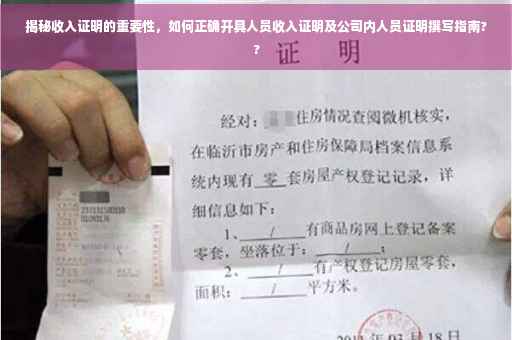 揭秘收入证明的重要性，如何正确开具人员收入证明及公司内人员证明撰写指南?
?
证 明
经对：住房情况查阅微机核实，
在临沂市房产和住房保障局档案信息系
统内现有 零 套房屋产权登记记录，详
细信息如下：
1、 / 有商品房网上登记备案
零套，坐落位于： / ；
2、 / 有产权登记房屋零套，
面积： / 平方米。
月 18 日